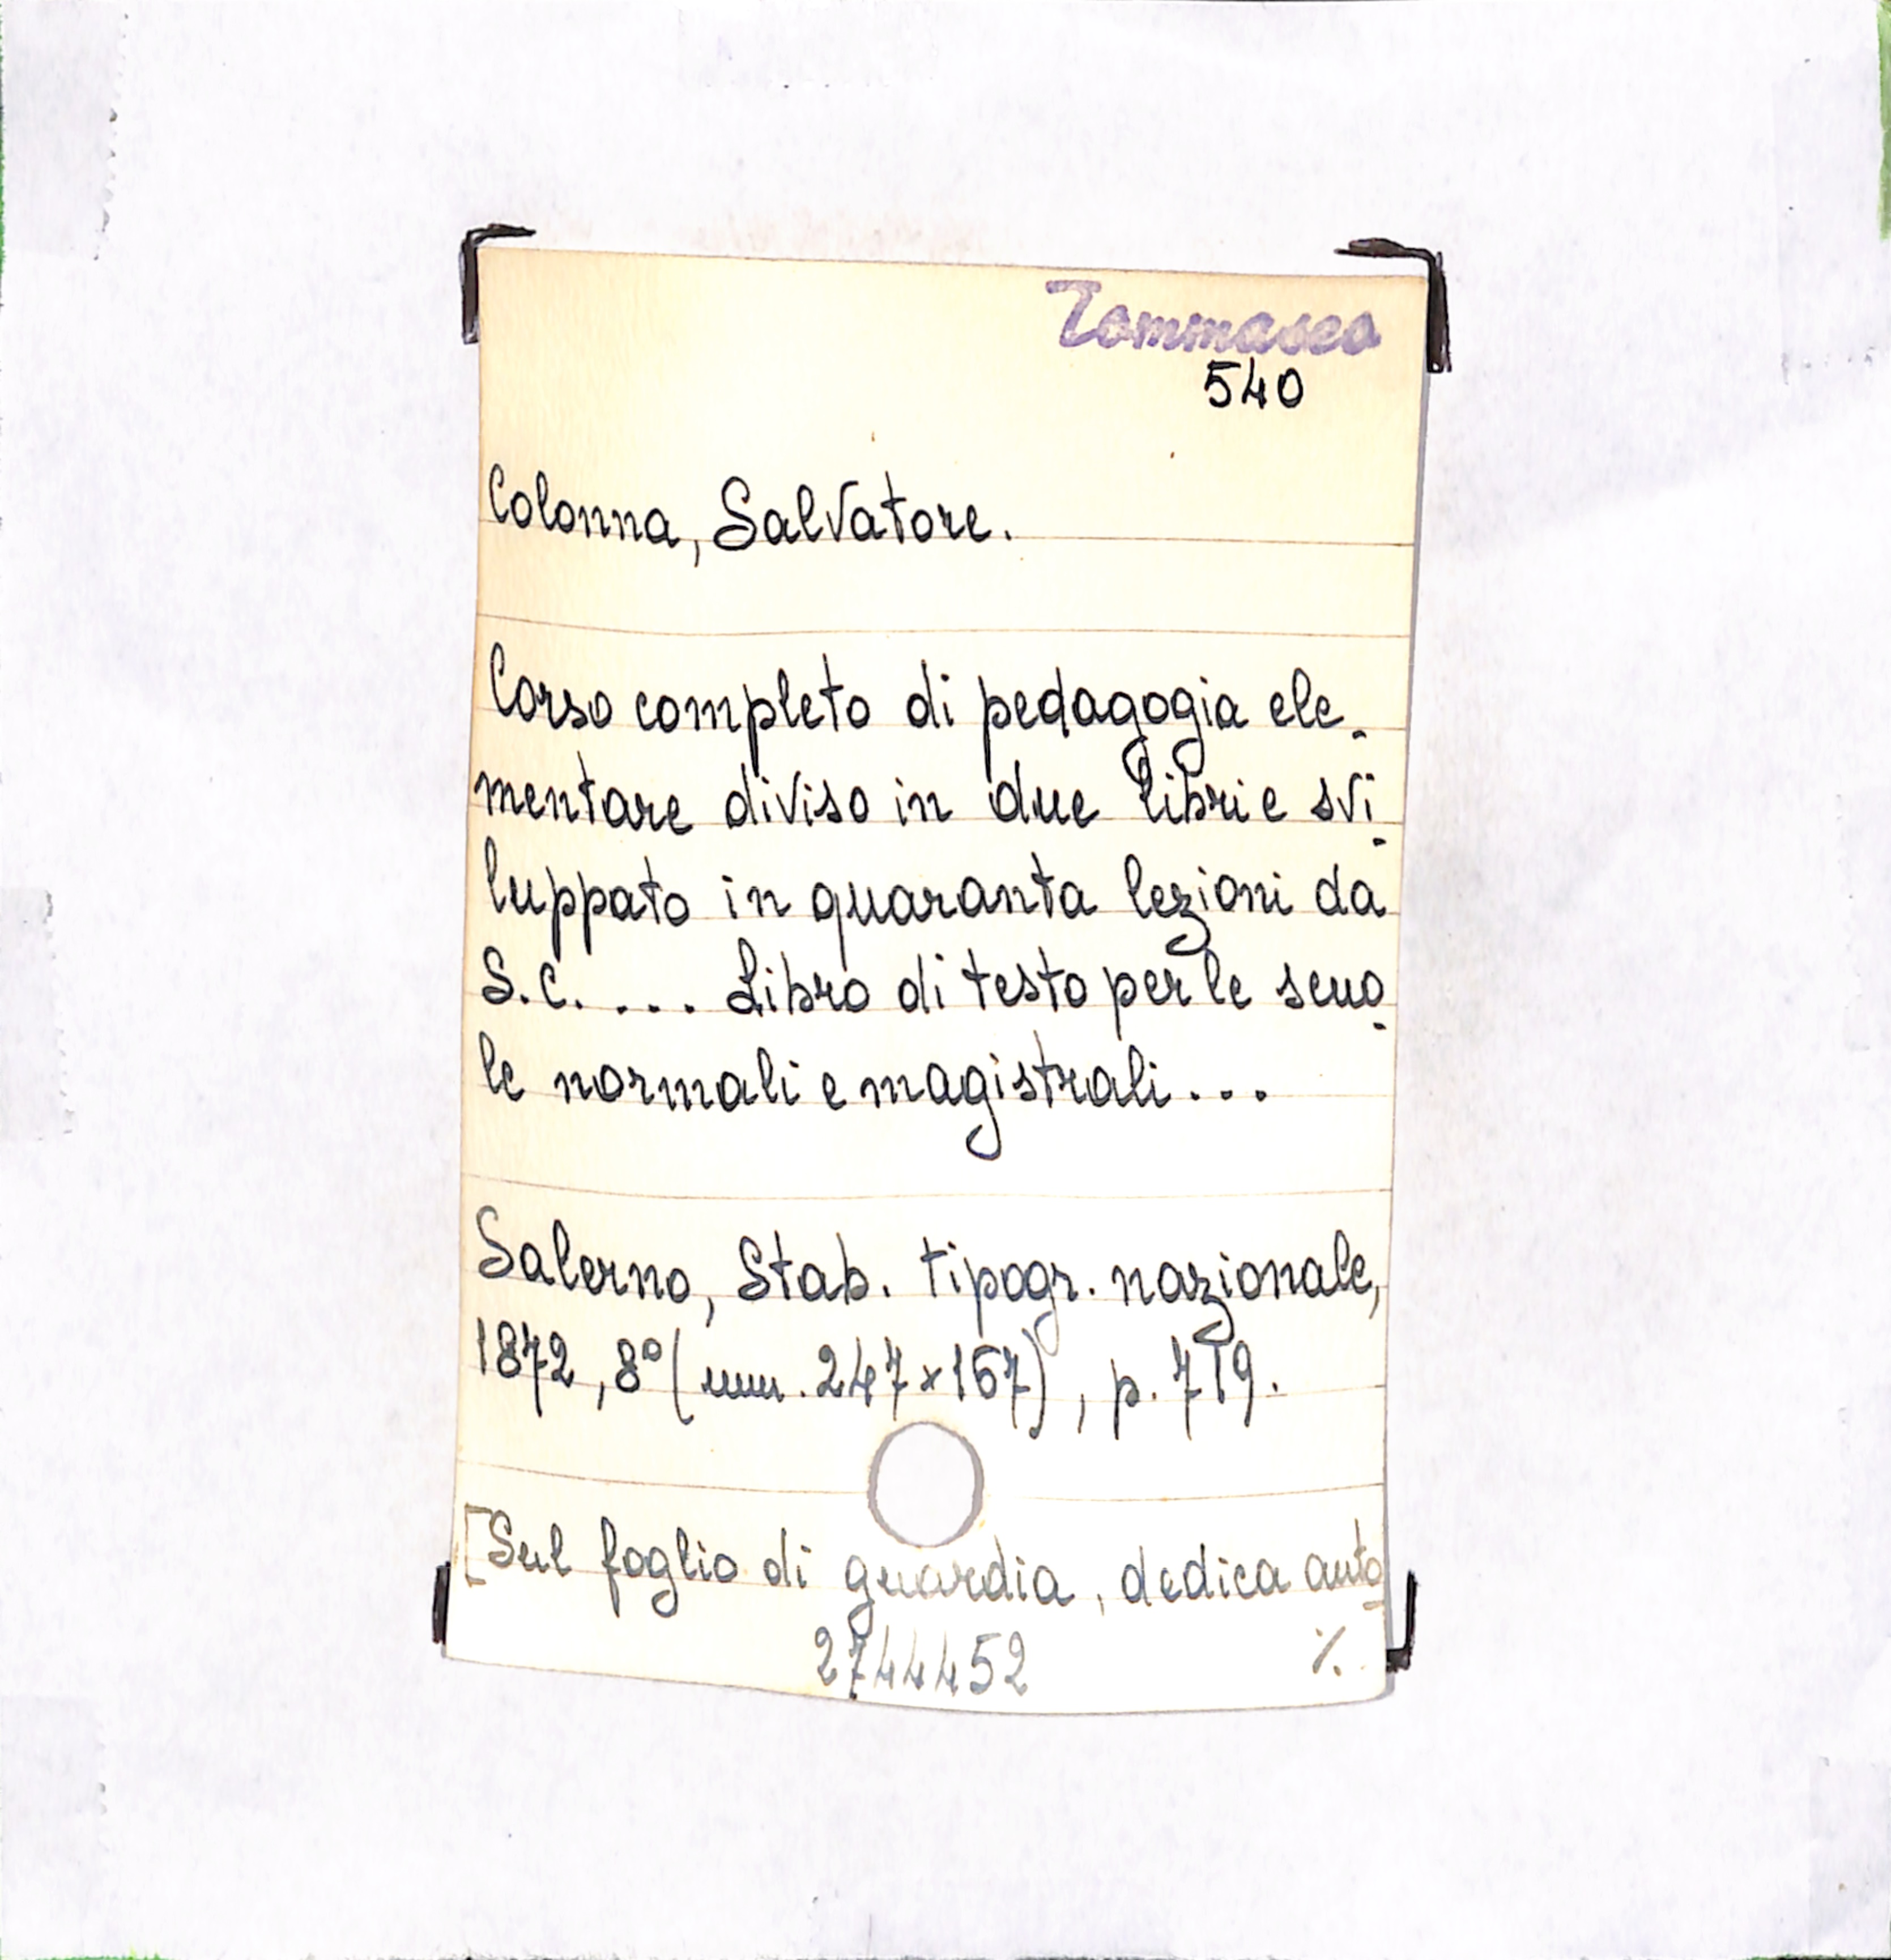 Tommaseo
540
Colonna, Salvatore.
Corso completo di pedagogia ele-
mentare diviso in due libri e svi-
luppato in quaranta lezioni da
S.C. ... Libro di testo per le scuo-
le normali e magistrali...
Salerno, Stab. tipogr. nazionale,
1872, 8° (mm. 247x167), p. 719.
[Sul foglio di guardia, dedica auto-
2744452 ·/.